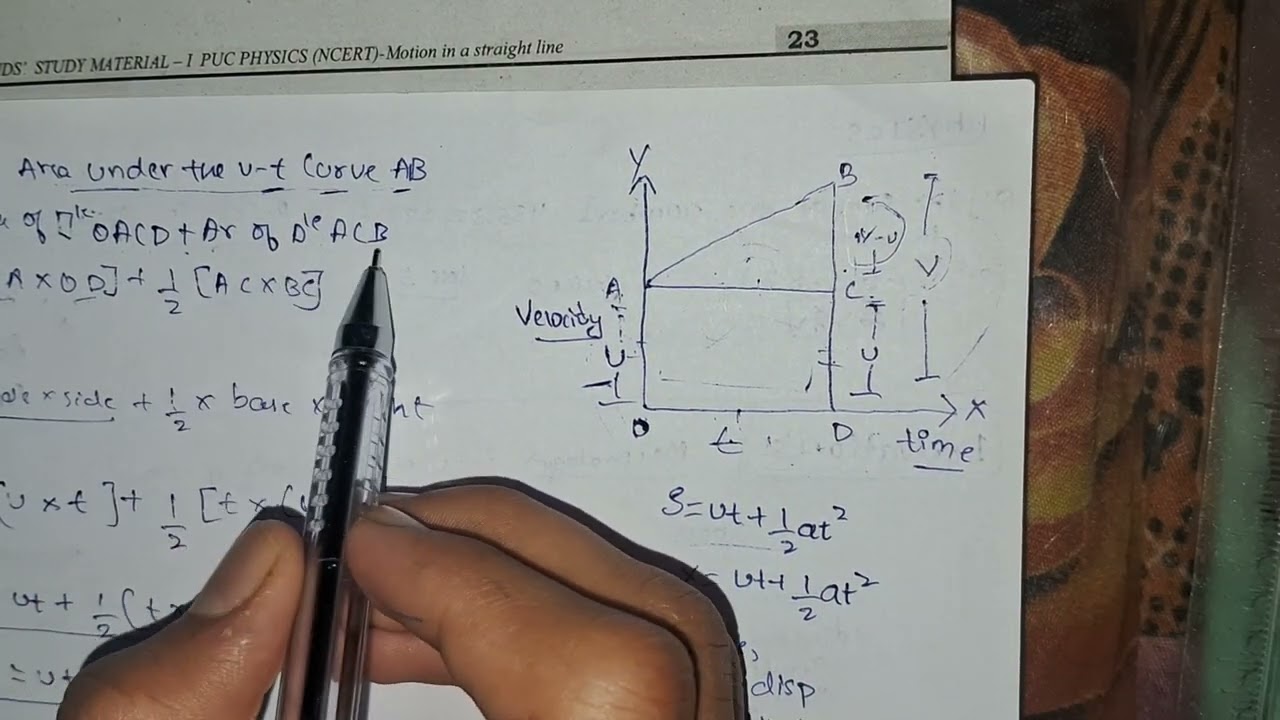 STUDY MATERIAL – I PUC PHYSICS (NCERT)-Motion in a straight line
23
Area under the v-t Curve AB
of OACD + Ar of ACB
A × OD] + 1/2 [AC × BC]
side + 1/2 × base ×
u × t] + 1/2 [t ×
ut + 1/2 (t
= ut
Y
B
v-u
V
A
C
Velocity
U
U
O
t
D
time
X
S = ut + 1/2 at²
ut + 1/2 at²
disp